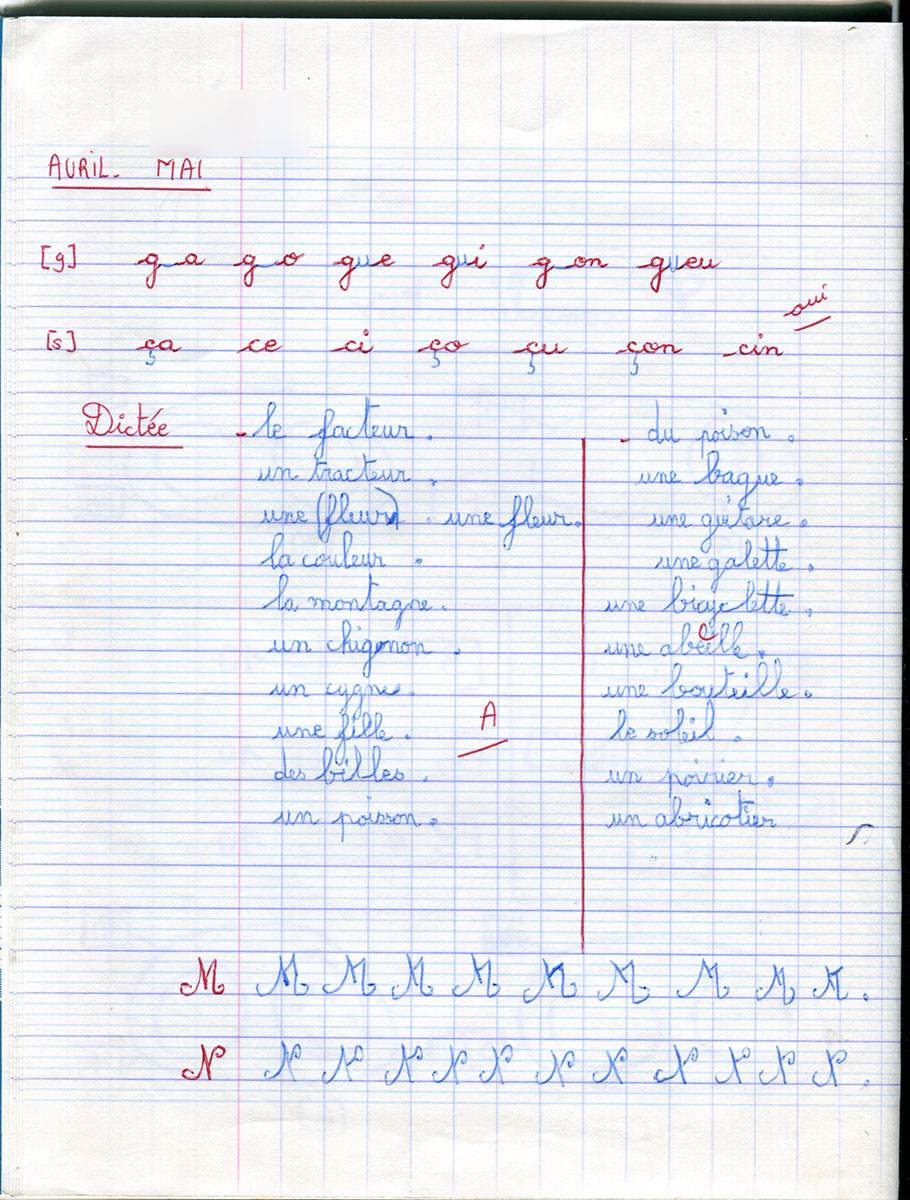 AVRIL. MAI
[g] ga go gue gui gon gueu
oui
[s] ça ce ci ço çu çon cin
Dictée - le facteur.
un tracteur.
une (fleur). une fleur.
la couleur.
la montagne.
un chignon.
un cygne.
une fille.
des billes.
un poisson.
A
- du poison.
une bague.
une guitare.
une galette.
une bicyclette.
une abeille.
une bouteille.
le soleil.
un poirier.
un abricotier
M M M M M M M M M M.
N N N N N N N N N N N.